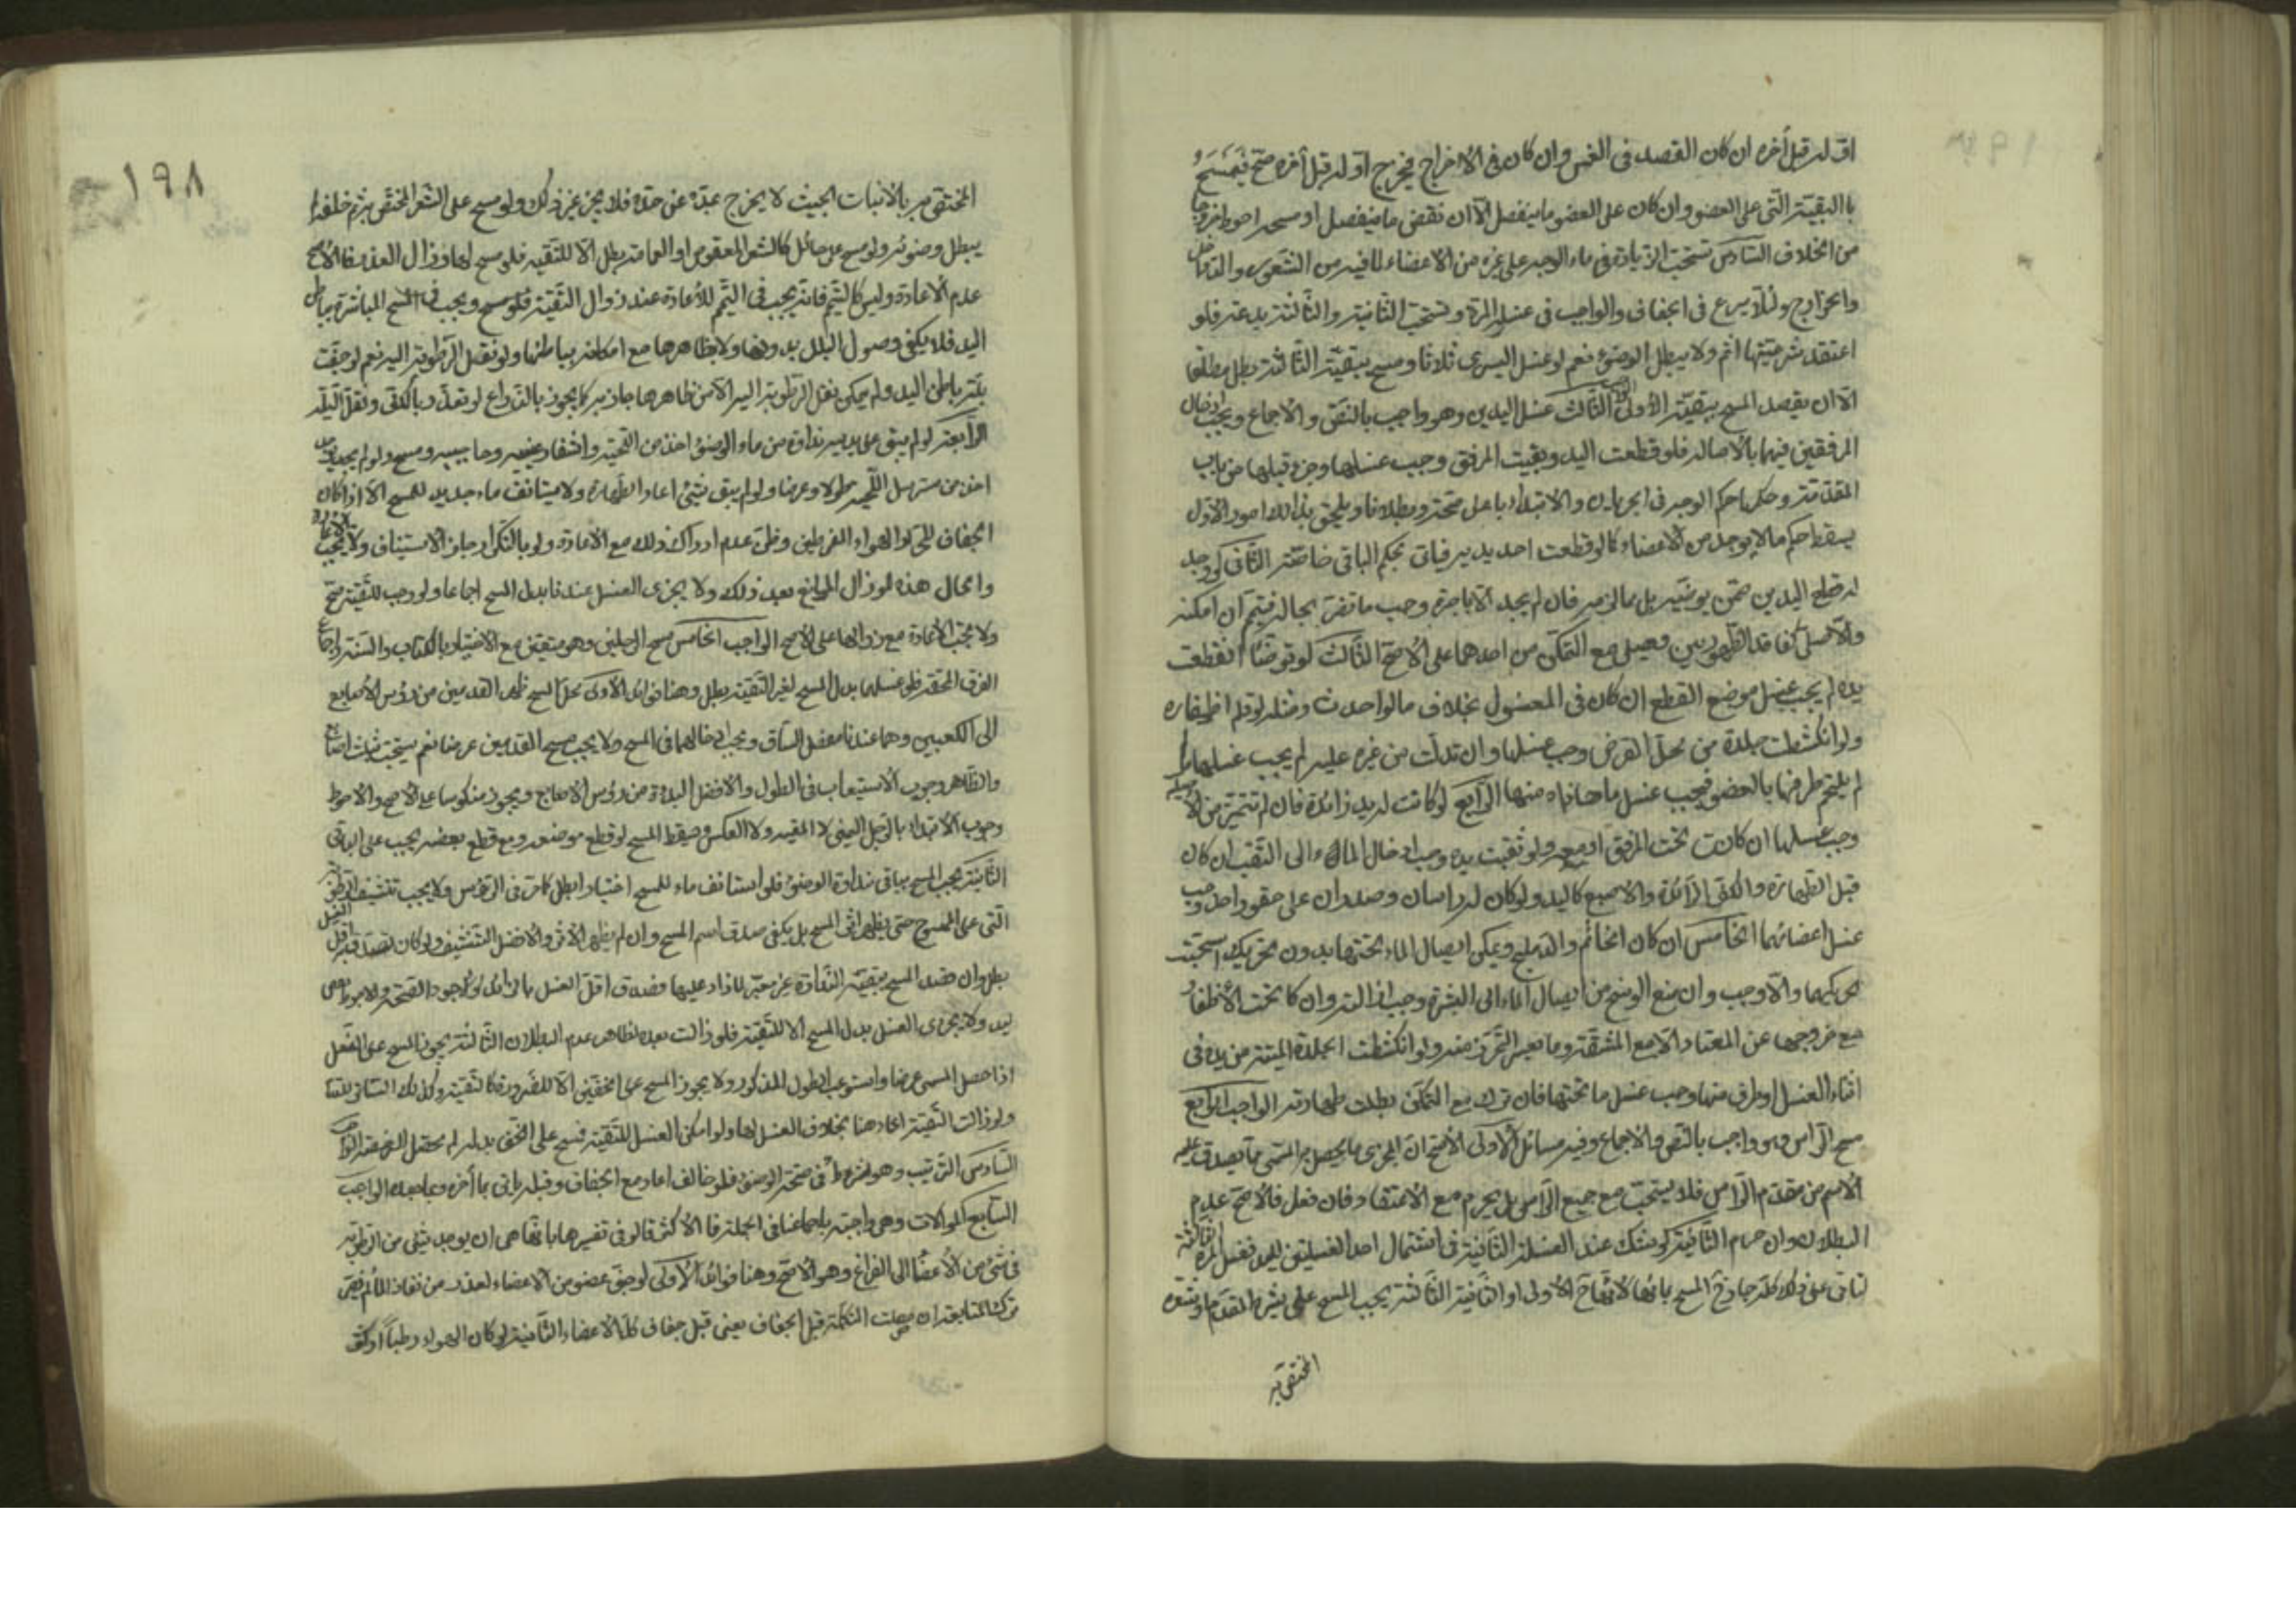 اوله قبل أخره ان كان القصد فى الغمس وان كان فى الاخراج فيخرج اوله قبل أخره صح فيمسح
بالبقية التى على العضو وان كان على العضو ما ينفصل الا ان نقض ما ينفصل او مسحه احوط خروجا
من الخلاف السادس تستحب الزيادة فى ماء الوجه على غيره من الاعضاء لما فيه من الشعور والتداخل
ولئلا يسرع فى الجفاف والواجب فى غسله المرة وتستحب الثانية والثالثة بدعة فلو
اعتقد شرعيتها اثم ولا يبطل الوضوء نعم لو غسل اليسرى ثلاثا ومسح ببقية الثالثة بطل مطلقا
الا ان يقصد المسح ببقية الأولى الواجب الثالث غسل اليدين وهو واجب بالنص والاجماع ويجب ادخال
المرفقين فيهما بالاصالة فلو قطعت اليد وبقيت المرفق وجب غسلها وجزء قبلها من باب
المقدمة وحكمها حكم الوجه فى الجريان والابتداء باعلى صحة وبطلانا ويلحق بذلك امور الأول
يسقط حكم ما لا يوجد من الاعضاء كما لو قطعت احد يديه فياتى بحكم الباقى خاصة الثانى لو وجد
اليدين من يوضيه بذل ما لزمه فان لم يجد الا باجرة وجب ما لم تضر بحاله فيتمم ان امكنه
والا صلى كفاقد الطهورين ويصلى مع التمكن من احدهما على الاصح الثالث لو توضأ ثم انقطعت
يده لم يجب غسل موضع القطع ان كان فى المغسول بخلاف ما لو احدث ومثله لو قلم اظفاره
ولو انكشطت جلدة من محل الفرض وجب غسلها وان تدلت من غيره عليه لم يجب غسلها ما
لم يلتحم طرفها بالعضو فيجب غسل ما حاذاه منها الرابع لو كانت له يد زائدة فان لم تتميز من الاصلية
وجب غسلها ان كانت تحت المرفق او معه ولو ثقبت يده وجب ادخال الماء الى الثقب ان كان
قبل الطهارة والكف الزائدة والاصبع كاليد ولو كان له راسان وصدران على حقو واحد وجب
غسل اعضائهما الخامس ان كان الخاتم والدملج ويمكن ايصال الماء تحتها بدون تحريك استحبت
تحريكهما والا وجب وان منع الوسخ من ايصال الماء الى البشرة وجب ازالته وان كان تحت الأظفار
مع خروجها عن المعتاد الا مع المشقة وما يعسر التحرز منه ولو انكشطت الجلدة الميتة من يده فى
اثناء الغسل او طرف منها وجب غسل ما تحتها فان ترك مع التمكن بطلت طهارته الواجب الرابع
مسح الراس وهو واجب بالنص والاجماع وفيه مسائل الأولى الاصح ان المجزى ما يحصل به المسمى مما يصدق عليه
الاسم من مقدم الراس فلا يستحب مسح جميع الراس بل يحرم مع الاعتقاد فان فعل فالاصح عدم
البطلان وان حرم الثانية لو شك عند الغسلة الثانية فى اشتمال احد الغسلتين لليد فغسل المرة الثالثة
لياتى على ذلك كله جاز المسح بمائها لانها الأولى او الثانية الثالثة يجب المسح على بشرة المقدم او شعره
المختص به
١٩٨
المختص به بالانبات بحيث لا يخرج عن حده فلا يجزى غير ذلك ولو مسح على الشعر المختص بغيره خلفا
يبطل وضوئه ولو مسح على حائل كالشعر المعقوص او العمامة بطل الا للتقية فلو مسح لها وزال العذر فالاصح
عدم الاعادة وليس كالتيمم فانه يجب فى التيمم للأعادة عند زوال التقية فلو مسح ويجب فى المسح المباشرة بباطن
اليد فلا يكفى وصول البلل بدونها ولا بظاهرها مع امكانه بباطنها ولو بنقل الرطوبة اليه نعم لو جفت
بلة باطن اليد ولم يمكن نقل الرطوبة اليه الا من ظاهرها جاز به كما يجوز بالذراع لو تعذر بالكف ونقل البلة
الرابعة لو لم يبق على يديه نداوة من ماء الوضوء اخذ من لحيته واشفار عينيه وحاجبيه ومسح ولو لم يجد
اخذ من مسترسل اللحية طولا وعرضا ولو لم يبق شئ اعاد الطهارة ولا يستانف ماء جديد للمسح الا اذا كان
الجفاف للحر او الهواء المفرطين وظن عدم ادراك ذلك مع الاعادة ولو بالتكرار جاز الاستيناف ولا يجب الاعادة
والحال هذه لو زال المانع بعد ذلك ولا يجزى الغسل عندنا بدل المسح اجماعا ولو وجب للتقية صح
ولا يجب الاعادة مع زوالها على الاصح الواجب الخامس مسح الرجلين وهو متعين مع الاختيار بالكتاب والسنة واجماع
الفرقة المحقة فلو غسلهما بدل المسح لغير التقية بطل وهنا فوائد الأولى محل المسح ظهر القدمين من رؤس الأصابع
الى الكعبين وهما عندنا مفصل الساق ويجب ادخالهما فى المسح ولا يجب مسح القدمين عرضا نعم يستحب بثلث اصابع
والظاهر وجوب الاستيعاب فى الطول والافضل البدءة من رؤس الاصابع ويجوز منكوسا على الاصح والاحوط
وجوب الابتداء بالرجل اليمنى لا المعية ولا العكس ويسقط المسح لو قطع موضعه ومع قطع بعضه يجب على الباقى
الثانية يجب المسح بباقى نداوة الوضوء فلو استانف ماء للمسح اختيارا بطل كما مر فى الرأس ولا يجب تنشيف الرطوبة
التى على الممسوح حتى يظهر اثر المسح بل يكفى صدق اسم المسح وان لم يظهر الاثر والافضل التنشيف ولو كان قصد به اقل الغسل
بطل وان قصد المسح ببقية النداوة غير معتبر لما زاد عليها وصدق اقل الغسل بالزائد فالاجود الصحة والاحوط
ولا يجزى الغسل بدل المسح الا للتقية فلو زالت بعد فالظاهر عدم البطلان الثالثة يجوز المسح على النعل
اذا حصل المسمى عرضا واستوعب الطول المذكور ولا يجوز المسح على الخفين الا للضرورة كالتقية وكذلك الساتر للنساء
ولو زالت التقية اعاد هنا بخلاف الغسل لها ولو امكن الغسل للتقية فمسح على الخف بدله لم يحصل الواجب
السادس الترتيب وهو شرط فى صحة الوضوء فلو خالف اعاد مع الجفاف وقبله ياتى بما أخره وبما بعده الواجب
السابع الموالات وهى واجبة باجماعنا فى الجملة فالأكثر قالو فى تفسيرها بانها هى ان يوجد شئ من الرطوبة
فى شئ من الأعضاء الى الفراغ وهو الاصح وهنا فوائد الأولى لو جف عضو من الاعضاء لعذر من نفاد الماء لم يضر
ترك المتابعة ان حصلت التكملة قبل الجفاف يعنى قبل جفاف كل الاعضاء الثانية لو كان الهواء رطبا او كثف